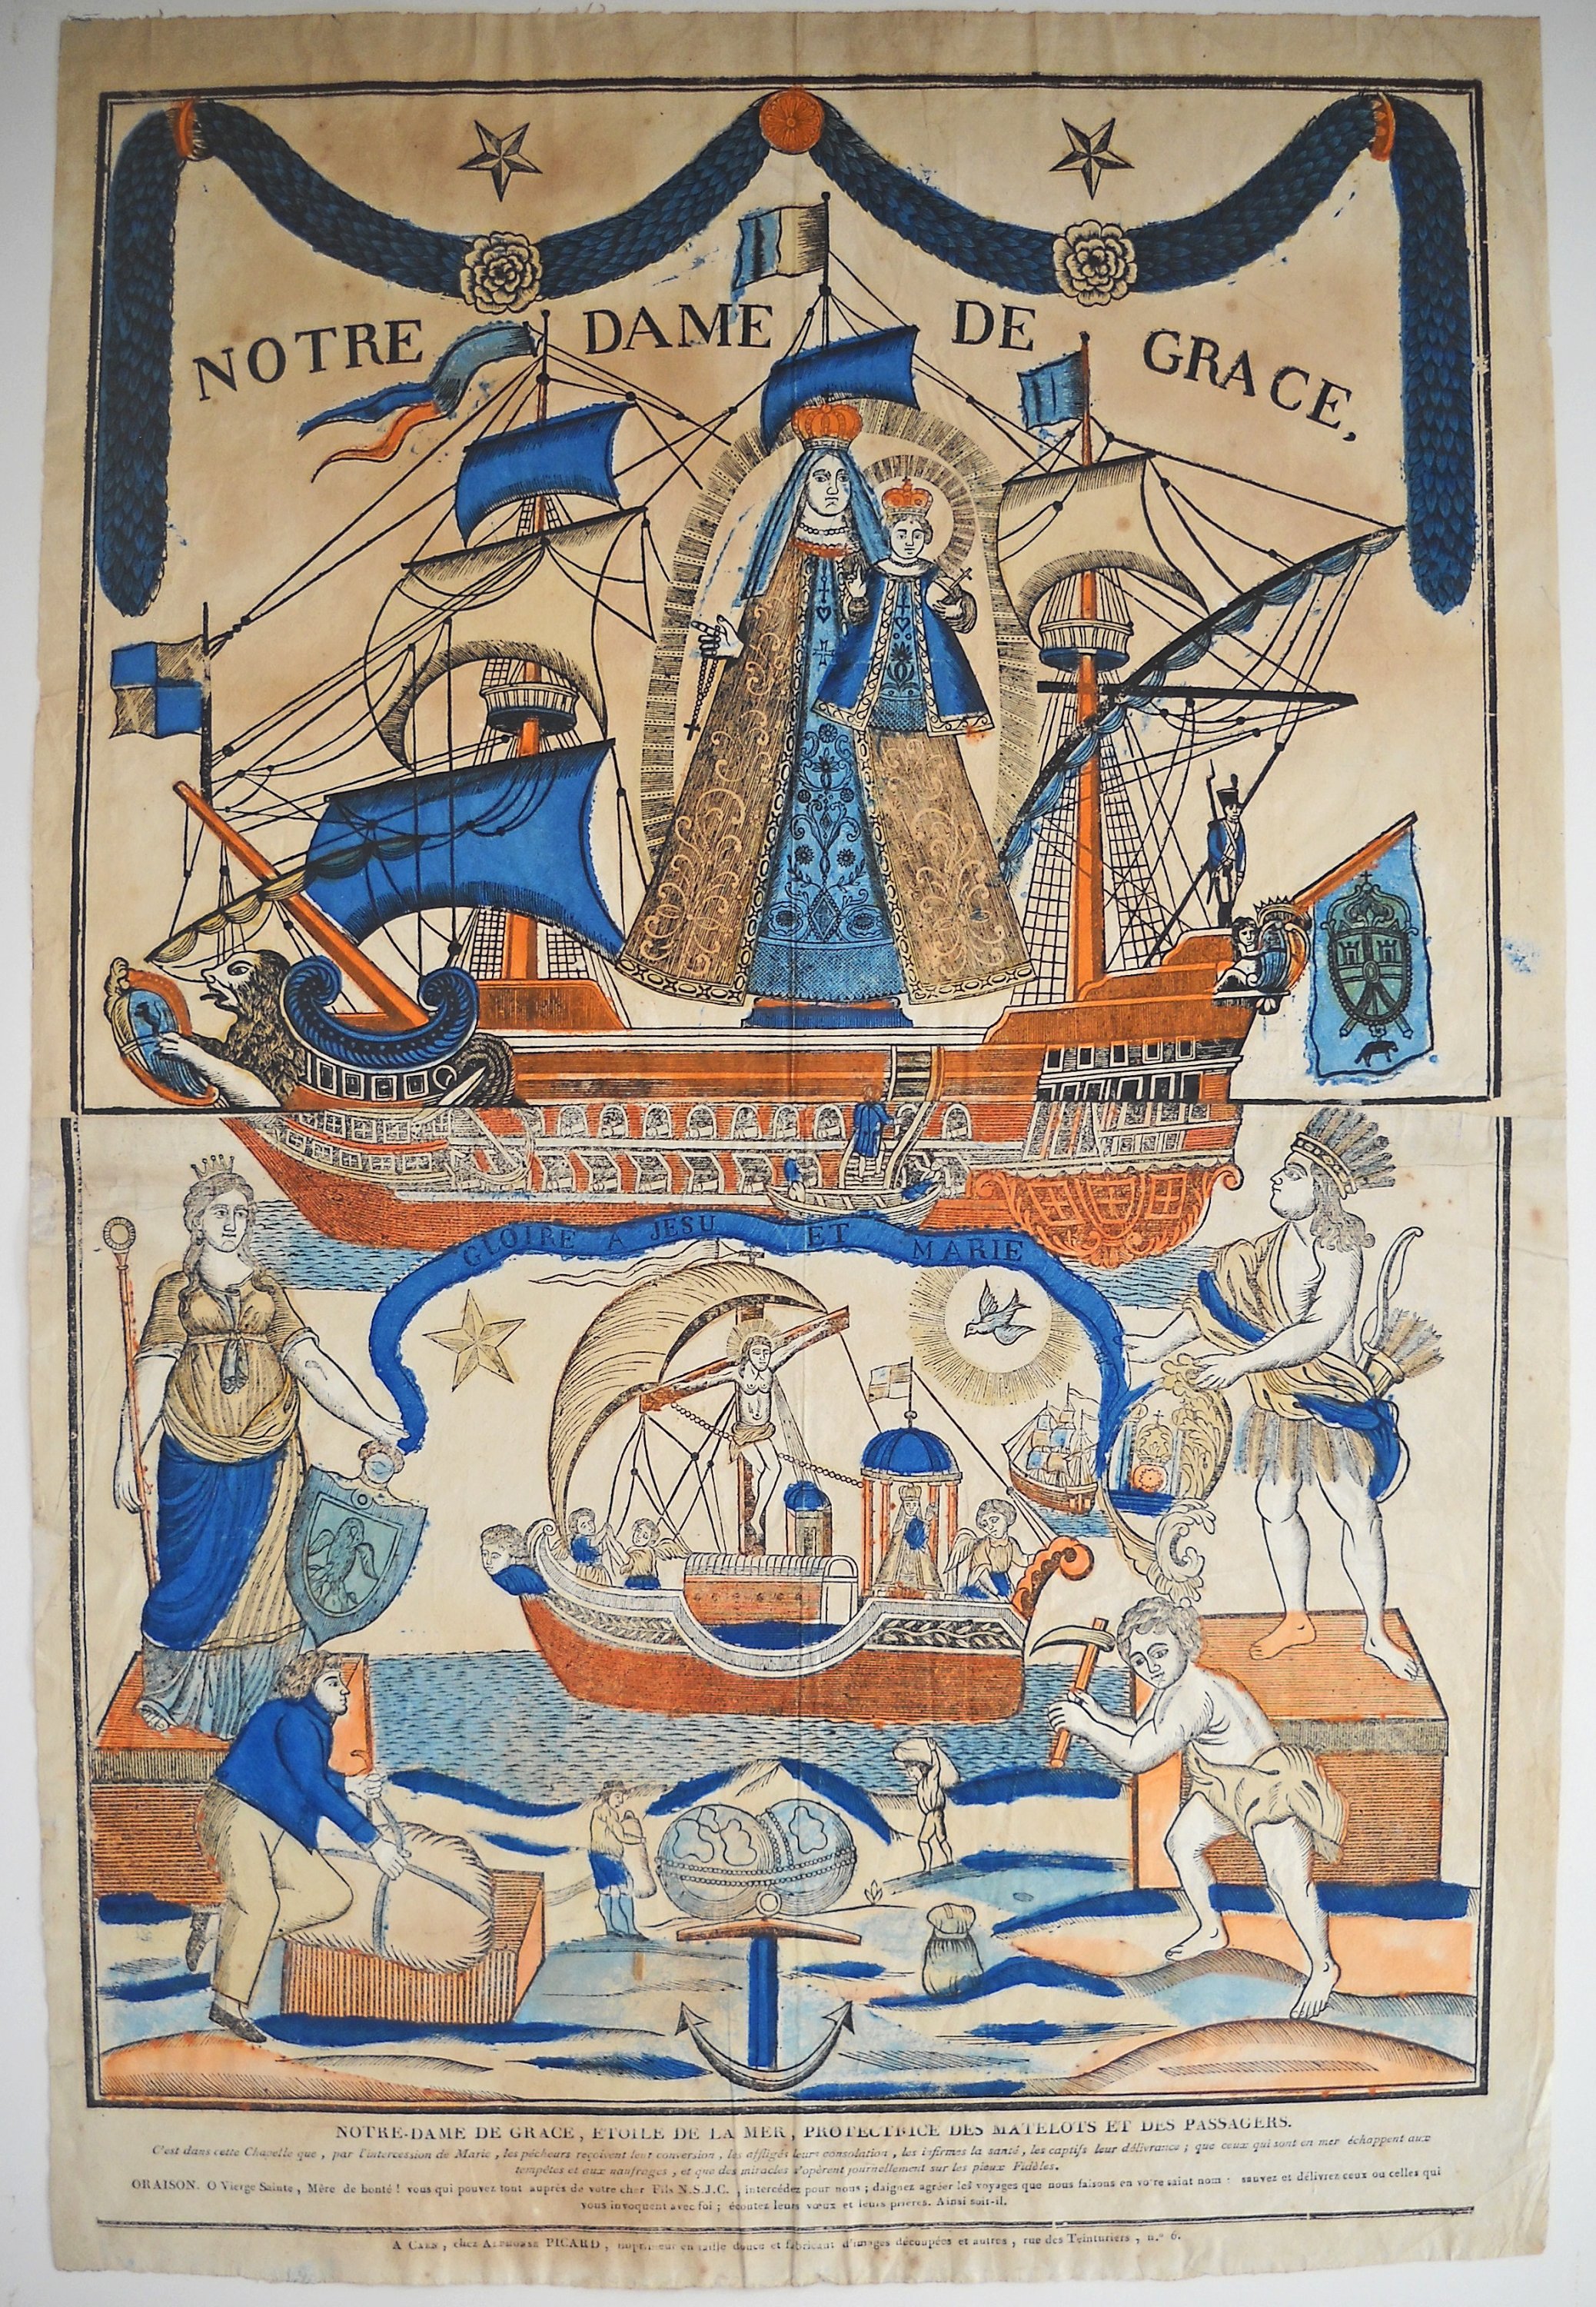 NOTRE DAME DE GRACE,
GLOIRE A JESU ET MARIE
NOTRE-DAME DE GRACE, ETOILE DE LA MER, PROTECTRICE DES MATELOTS ET DES PASSAGERS.
C'est dans cette Chapelle que, par l'intercession de Marie, les pécheurs reçoivent leur conversion, les affligés leurs consolation, les infirmes la santé, les captifs leur délivrance; que ceux qui sont en mer échappent aux
tempêtes et aux naufrages, et que des miracles s'opèrent journellement sur les pieux Fidèles.
ORAISON. O Vierge Sainte, Mère de bonté! vous qui pouvez tout auprès de votre cher Fils N.S.J.C., intercédez pour nous; daignez agréer les voyages que nous faisons en votre saint nom: sauvez et délivrez ceux ou celles qui
vous invoquent avec foi; écoutez leurs vœux et leurs prières. Ainsi soit-il.
A CAEN, chez ALPHONSE PICARD, imprimeur en taille douce et fabricant d'images découpées et autres, rue des Teinturiers, n.º 6.